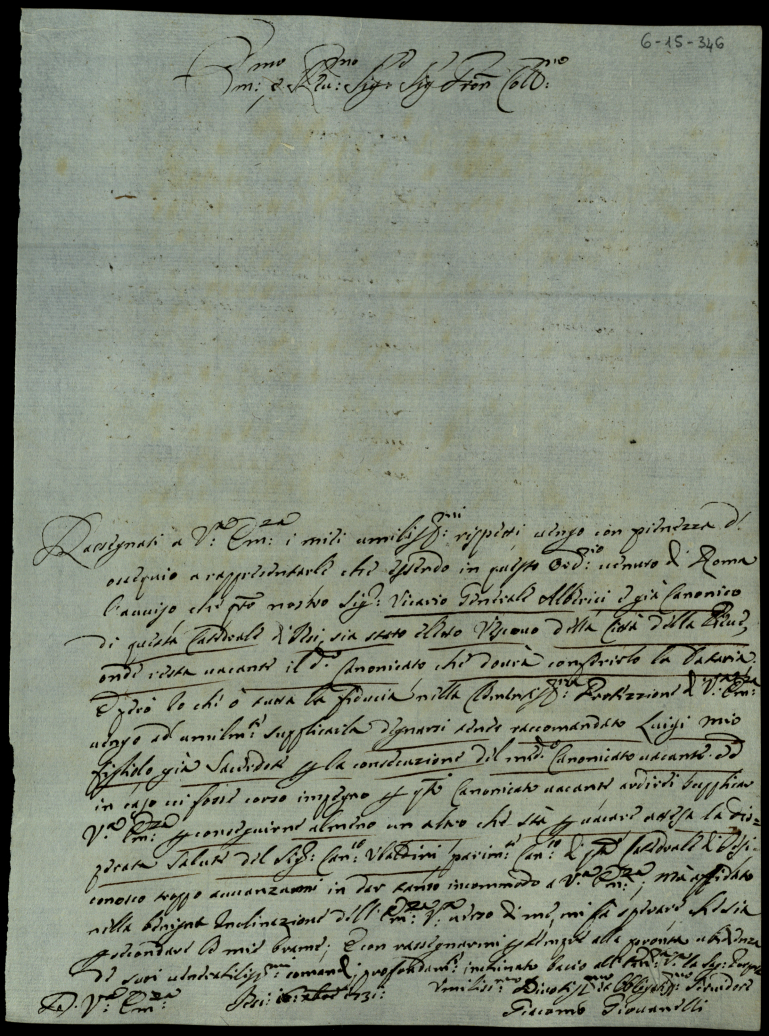 6-15-346
Em:mo e Rev:mo Sig:r Sig:r Pron Coll:mo
Rassegnati a V:ra Em:za i miei umiliss:mi rispetti, vengo con pienezza d'
ossequio a rappresentarle che essendo in questo Ord:rio venuto di Roma
l'avviso che nostro Sig:r Vicario Generale Alberici e già Canonico
di questa Catedrale sia stato eletto Vescovo della Città della Pieve,
onde resta vacante il d:o Canonicato che dovrà conferirlo la Dataria.
E però Io che ò tutta la fiducia nella Protezzione di V:ra Em:za
vengo ad umilm:te supplicarla degnarsi avere raccomandato Luigi mio
figliolo già Sacerdote p la consecuzione del med:o Canonicato vacante. ed
in caso vi fosse corso impegno p q:to Canonicato vacante ardirei supplicar
V:ra Em:za p conseguirne almeno un altro che stà p vacare attesa la dis=
perata salute del Sig:r Can:co Ubaldini parim:te Can:co di q:ta Catedrale di
conosco troppo avvanzarmi in dar tanto incommodo a V:ra Em:za, mà affidato
nella benigna Inclinazione dell' Em:za V:ra verso di me, mi fa sperare che sia
p secondare le mie brame; E con rassegnarmi p sempre alla pronta ubidienza
de suoi veneratiliss:mi comandi, profondam:te inchinato bacio alla Em:za la Sag:ra Porpora
Di V:ra Em:za 1731: Umiliss:mo Divotiss:mo ed Obligatiss:mo Servidore
Giacomo Giovanelli